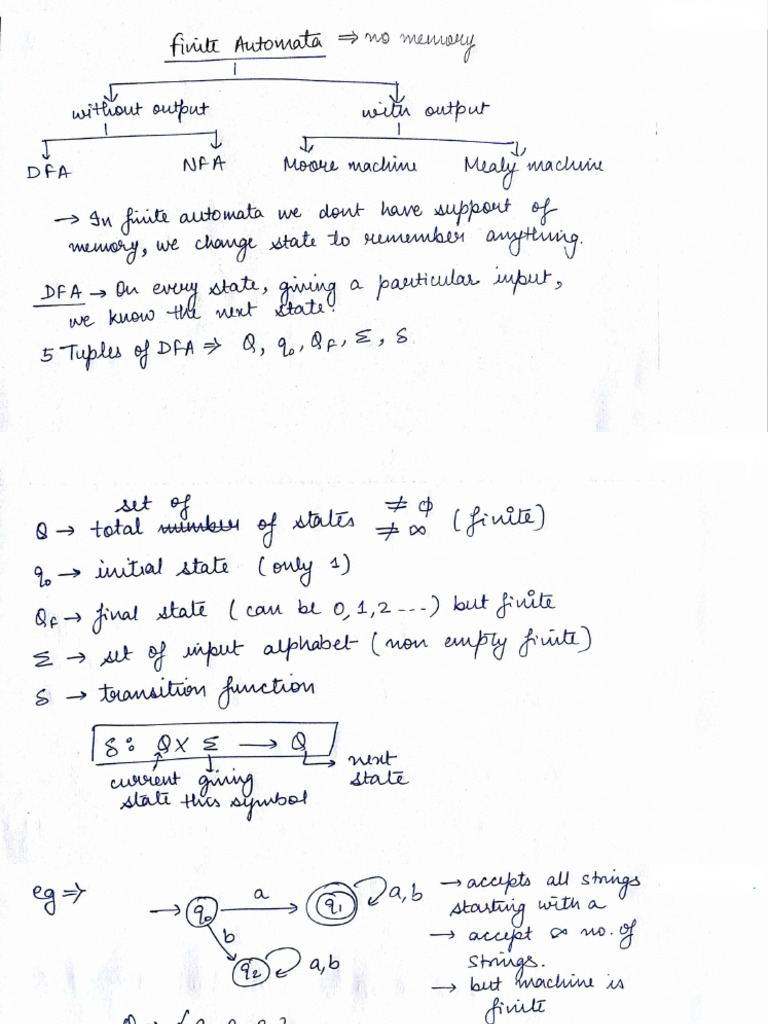 finite Automata ⇒ no memory
without output with output
DFA NFA Moore machine Mealy machine
→ In finite automata we dont have support of
memory, we change state to remember anything.
DFA → On every state, giving a particular input,
we know the next state.
5 Tuples of DFA ⇒ Q, q₀, Q_F, Σ, δ
set of
Q → total number of states ≠ ϕ ≠ ∞ (finite)
q₀ → initial state (only 1)
Q_F → final state (can be 0, 1, 2 ---) but finite
Σ → set of input alphabet (non empty finite)
δ → transition function
δ: Q × Σ → Q
current giving next
state this symbol state
eg ⇒ → q₀ a q₁ a, b
b q₂ a, b
→ accepts all strings
starting with a
→ accept ∞ no. of
strings.
→ but machine is
finite